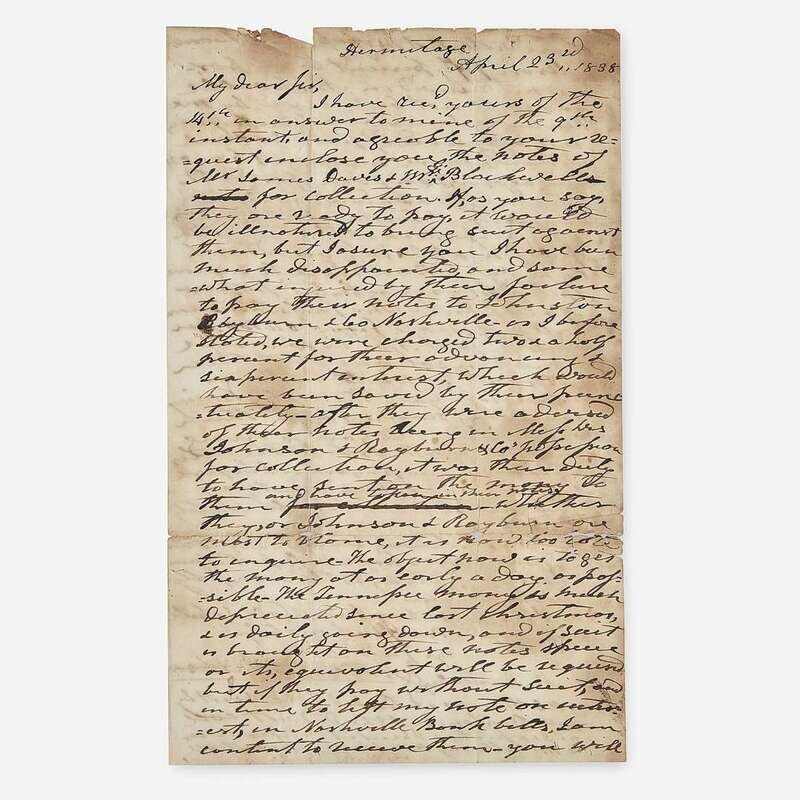 Hermitage
April 23rd,, 1838
My dear Sir,
I have recd yours of the
14,,th in answer to mine of the 9th
instant, and agreable to your re=
=quest inclose you the notes of
Mr James Daves & Wm Blackwells
for collection. If, as you say,
they are ready to pay, it would
be illnatured to bring suit against
them, but I asure you I have been
much disappointed, and some
=what injured by their failure
to pay their notes to Johnston
Rayburn & Co Nashville - as I before
stated, we were charged two & a half
percent for their advancing &
six percent interest, which would
have been saved by their punc
=tuality - after they were advised
of their notes being in Messrs
Johnson & Rayburn & Co' possession
for collection, it was their duty
to have sent on the money to
them and have taken up their notes whether
they, or Johnson & Rayburn are
most to blame, it is now too late
to inquire - The object now is to get
the money at as early a day as pos=
=sible. The Tennessee money is much
depreciated since last christmas,
& is daily going down, and if suit
is brought on these notes specie
or its, equivolent will be required
but if they pay without suit, and
in time to lift my note on inter=
=est, in Nashville Bank bills, I am
content to receive them - you will